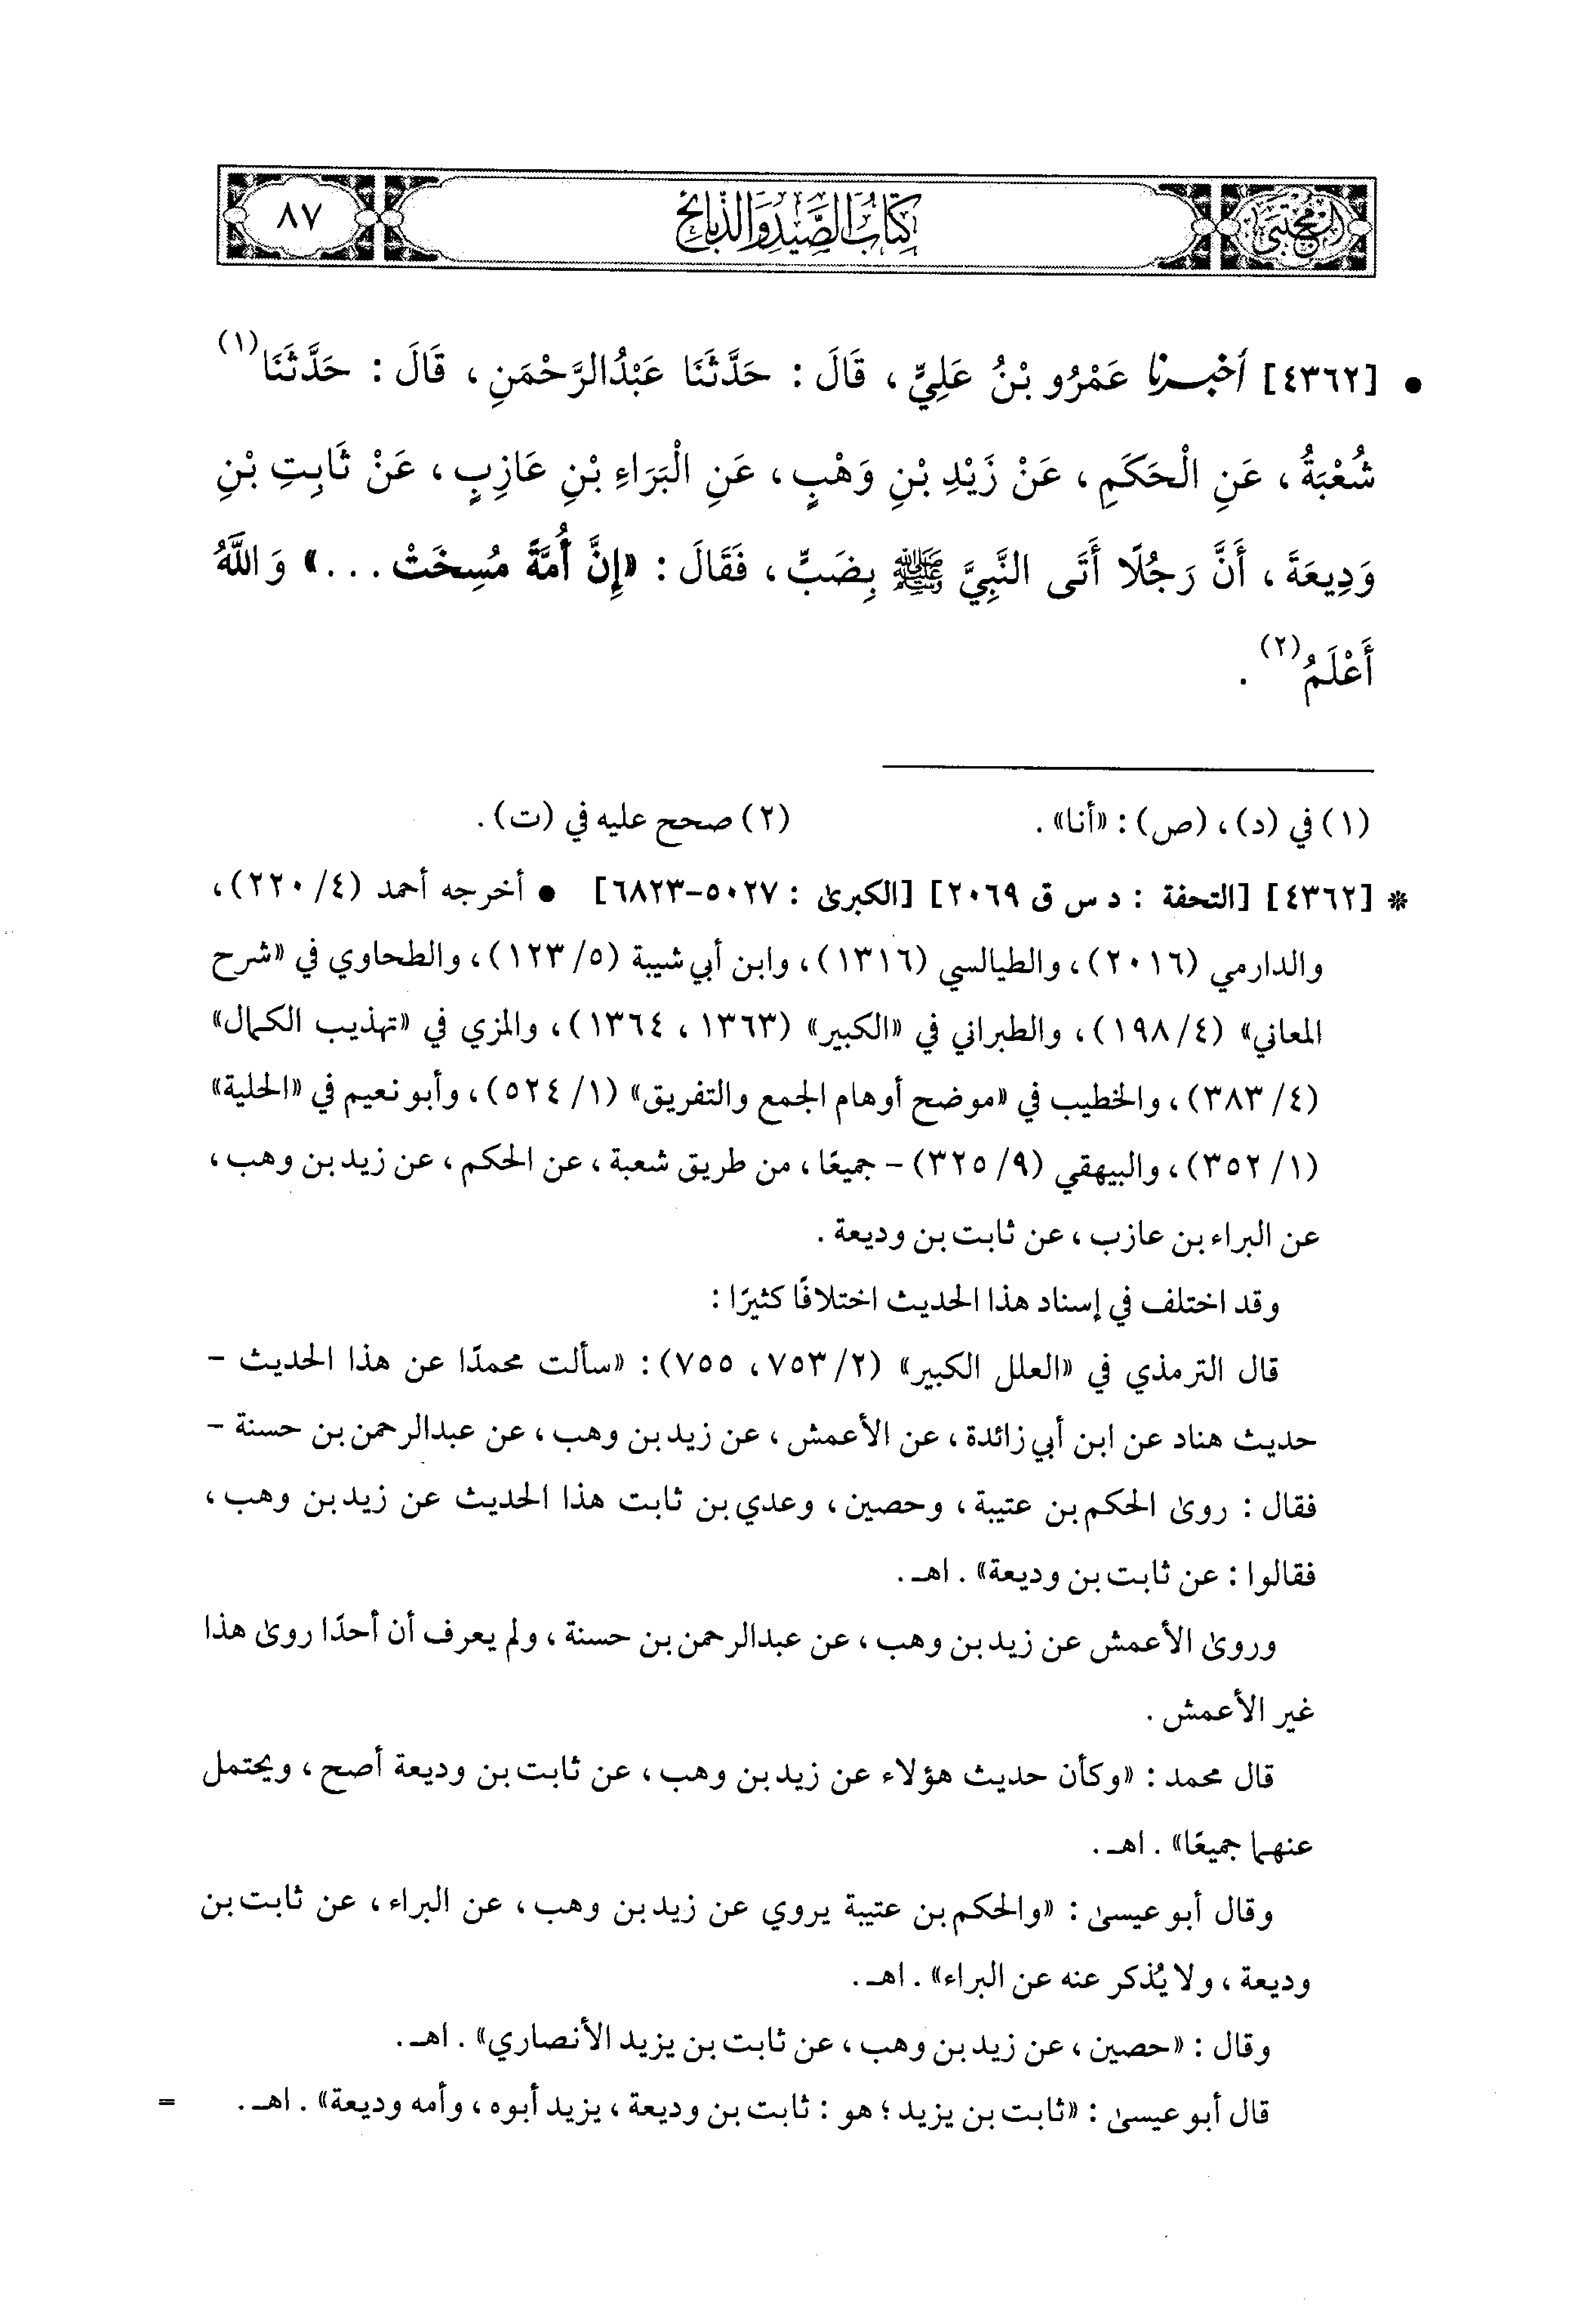 المجتبى
كتاب الصيد والذبائح
٨٧
• [٤٣٦٢] أخبرنا عَمْرُو بْنُ عَلِيٍّ ، قَالَ : حَدَّثَنَا عَبْدُالرَّحْمَنِ ، قَالَ : حَدَّثَنَا(١)
شُعْبَةُ ، عَنِ الْحَكَمِ ، عَنْ زَيْدِ بْنِ وَهْبٍ ، عَنِ الْبَرَاءِ بْنِ عَازِبٍ ، عَنْ ثَابِتِ بْنِ
وَدِيعَةَ ، أَنَّ رَجُلًا أَتَى النَّبِيَّ ﷺ بِضَبٍّ ، فَقَالَ : «إِنَّ أُمَّةً مُسِخَتْ ...» وَاللَّهُ
أَعْلَمُ(٢) .
(١) في (د) ، (ص) : «أنا» .
(٢) صحح عليه في (ت) .
* [٤٣٦٢] [التحفة : د س ق ٢٠٦٩] [الكبرى : ٥٠٢٧-٦٨٢٣] • أخرجه أحمد (٤/ ٢٢٠) ،
والدارمي (٢٠١٦) ، والطيالسي (١٣١٦) ، وابن أبي شيبة (٥/ ١٢٣) ، والطحاوي في «شرح
المعاني» (٤/ ١٩٨) ، والطبراني في «الكبير» (١٣٦٣ ، ١٣٦٤) ، والمزي في «تهذيب الكمال»
(٤/ ٣٨٣) ، والخطيب في «موضح أوهام الجمع والتفريق» (١/ ٥٢٤) ، وأبو نعيم في «الحلية»
(١/ ٣٥٢) ، والبيهقي (٩/ ٣٢٥) - جميعًا ، من طريق شعبة ، عن الحكم ، عن زيد بن وهب ،
عن البراء بن عازب ، عن ثابت بن وديعة .
وقد اختلف في إسناد هذا الحديث اختلافًا كثيرًا :
قال الترمذي في «العلل الكبير» (٢/ ٧٥٣ ، ٧٥٥) : «سألت محمدًا عن هذا الحديث -
حديث هناد عن ابن أبي زائدة ، عن الأعمش ، عن زيد بن وهب ، عن عبدالرحمن بن حسنة -
فقال : روى الحكم بن عتيبة ، وحصين ، وعدي بن ثابت هذا الحديث عن زيد بن وهب ،
فقالوا : عن ثابت بن وديعة» . اهـ .
وروى الأعمش عن زيد بن وهب ، عن عبدالرحمن بن حسنة ، ولم يعرف أن أحدًا روى هذا
غير الأعمش .
قال محمد : «وكأن حديث هؤلاء عن زيد بن وهب ، عن ثابت بن وديعة أصح ، ويحتمل
عنهما جميعًا» . اهـ .
وقال أبو عيسى : «والحكم بن عتيبة يروي عن زيد بن وهب ، عن البراء ، عن ثابت بن
وديعة ، ولا يُذكر عنه عن البراء» . اهـ .
وقال : «حصين ، عن زيد بن وهب ، عن ثابت بن يزيد الأنصاري» . اهـ .
قال أبو عيسى : «ثابت بن يزيد ؛ هو : ثابت بن وديعة ، يزيد أبوه ، وأمه وديعة» . اهـ . =